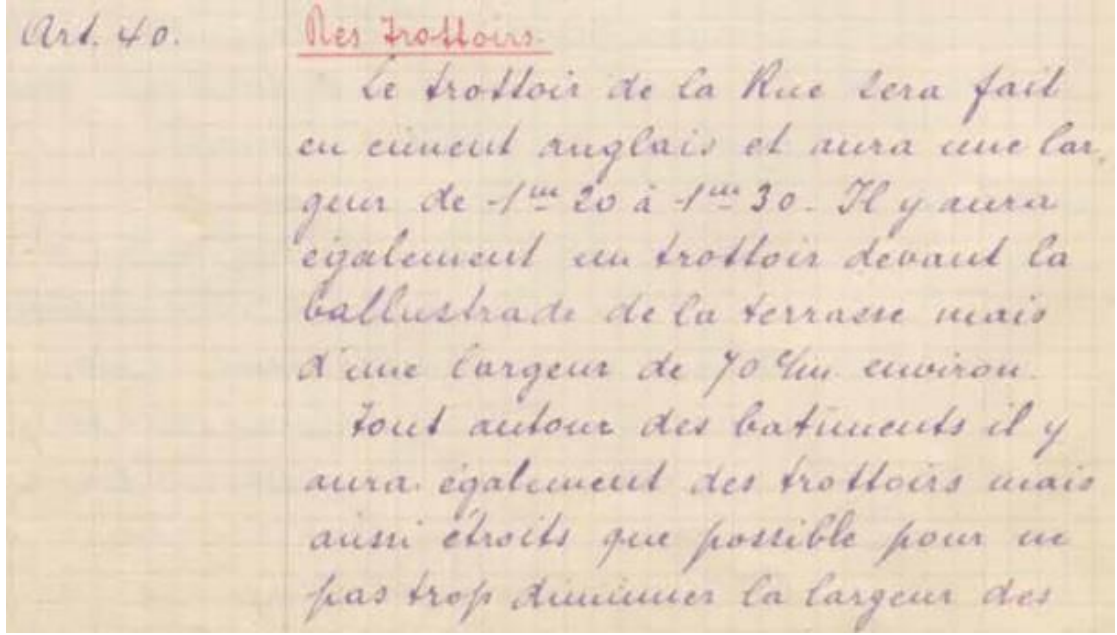 Art. 40. Des Trottoirs.
Le trottoir de la Rue sera fait
en ciment anglais et aura une lar-
geur de 1m 20 à 1m 30. Il y aura
également un trottoir devant la
ballustrade de la terrasse mais
d'une largeur de 70 c/m environ.
Tout autour des batiments il y
aura également des trottoirs mais
aussi étroits que possible pour ne
pas trop diminuer la largeur des